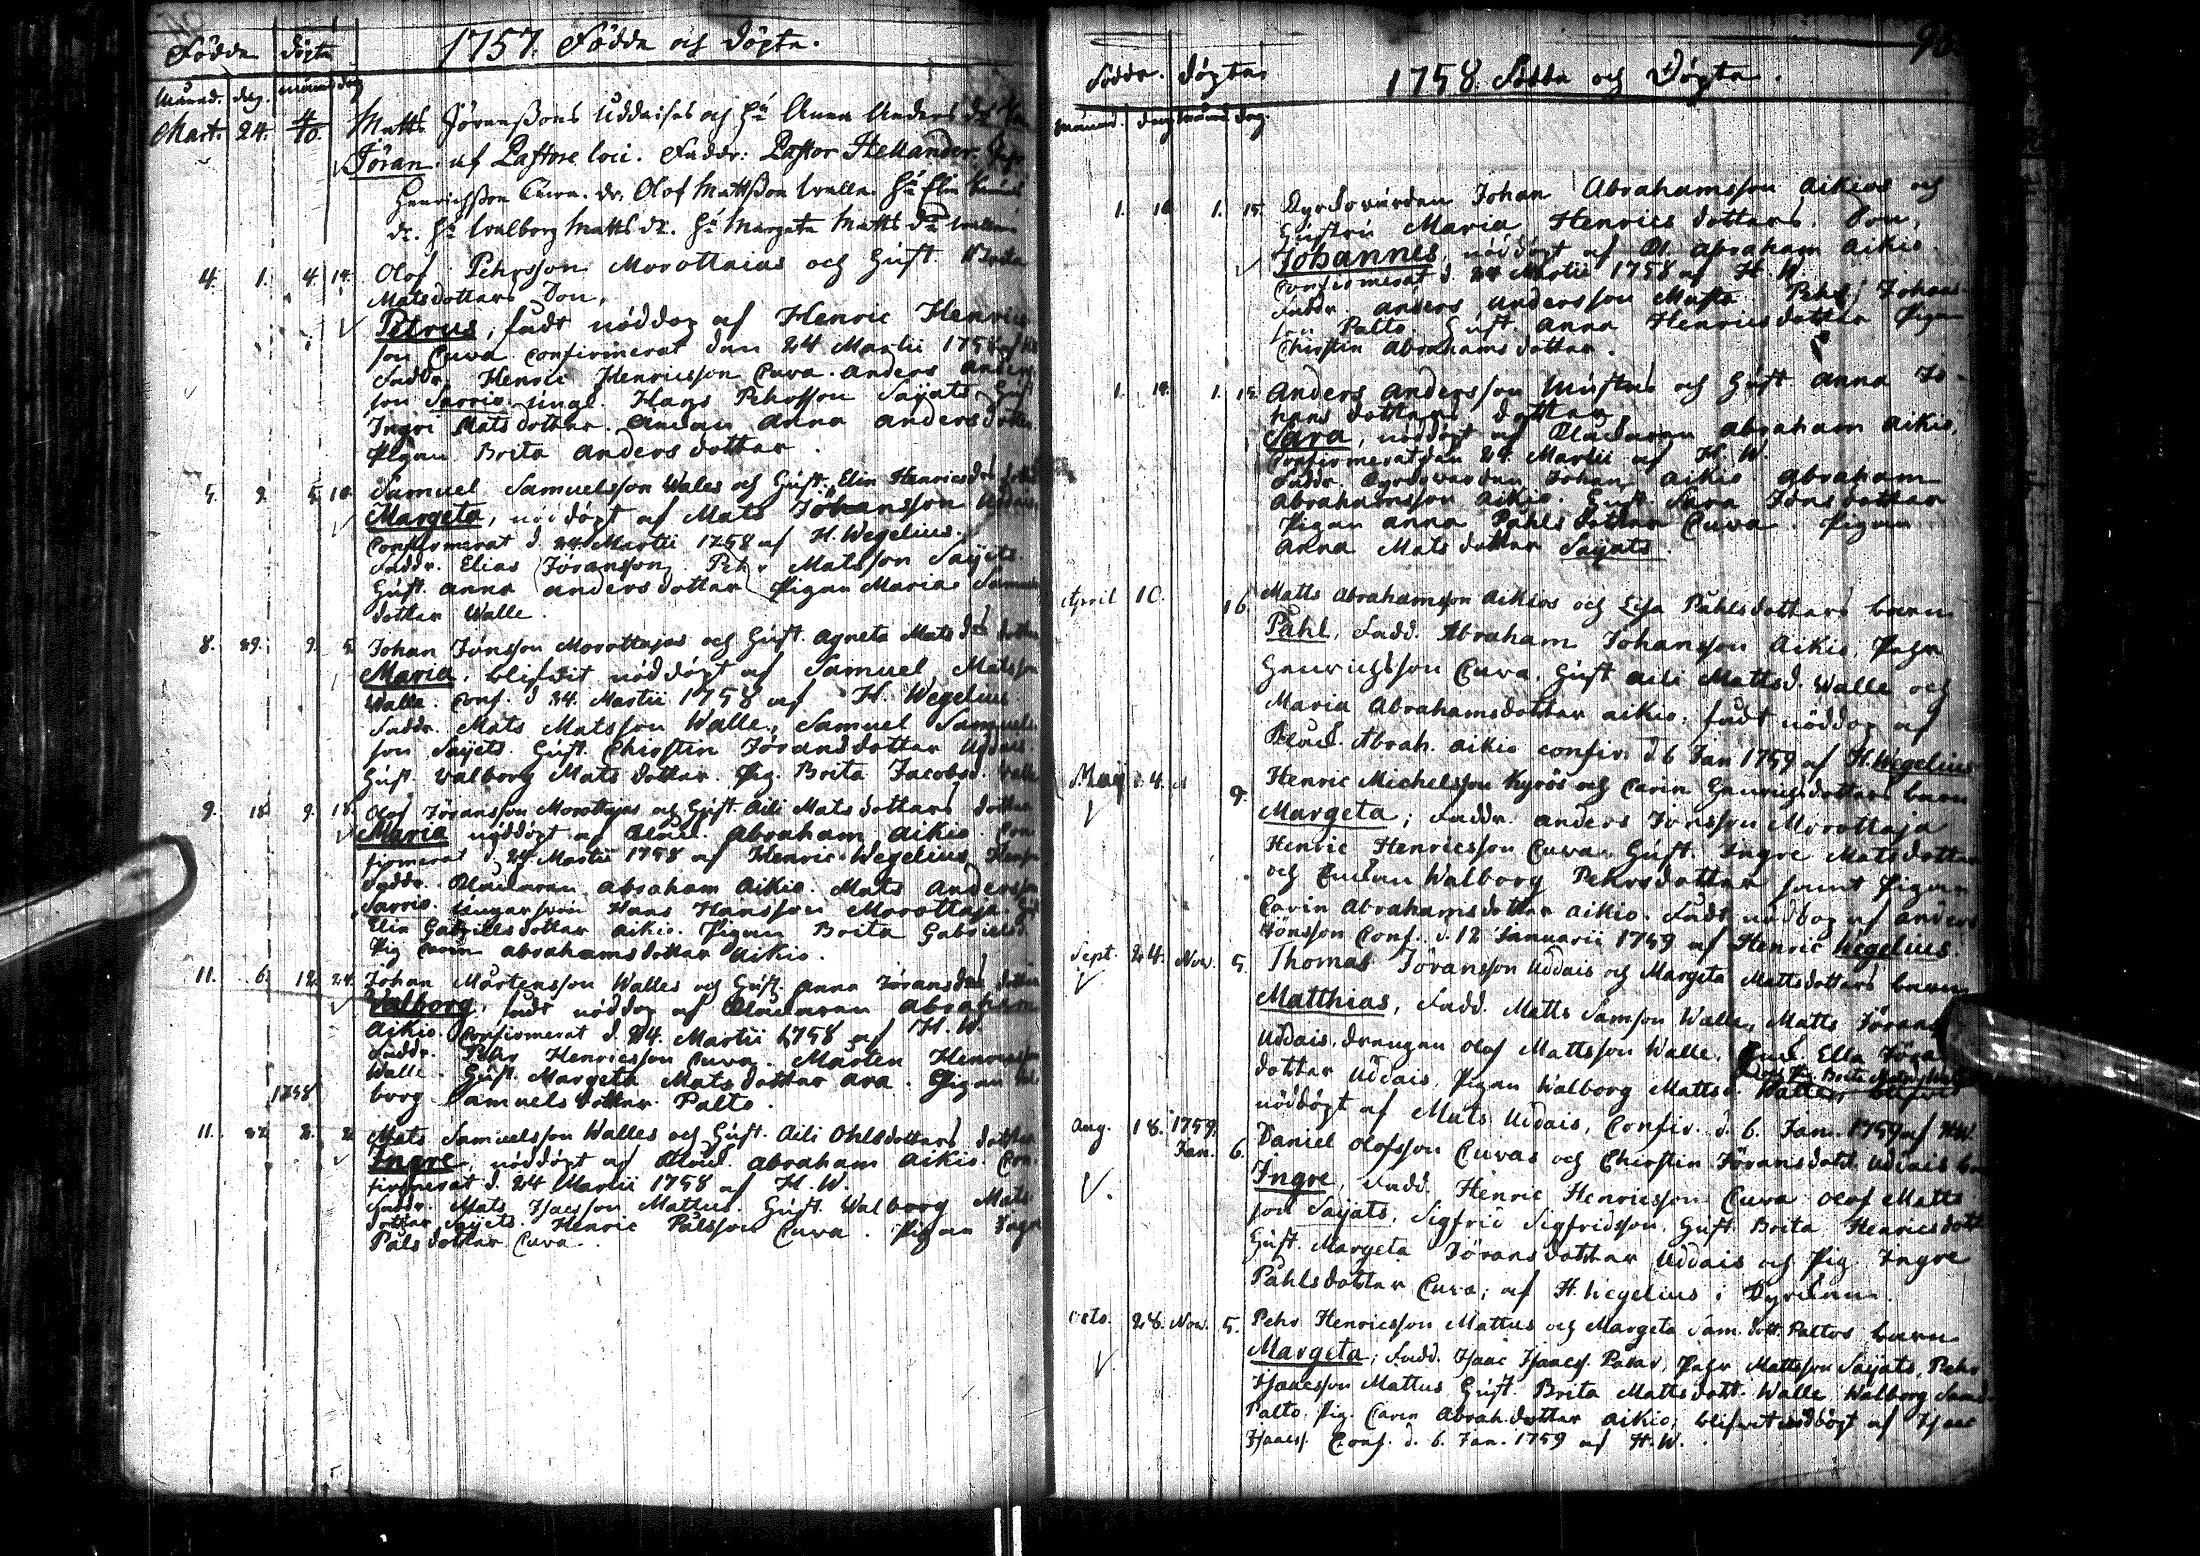 Födde döpte 1757. Födde och döpte.
Månad. dag. månad dag
Mart. 24. 4/10. Matts Jöranssons Uddaises och Hu Anna Anders dr
Jöran. af Pastore loci. Faddr: Pastor Hellander.
Henrichsson Cuva. dr. Olof Mattsson Walle. Hu Elin
dr. Hu Walborg Matts dr. Hu Margeta Matts dr
4. 1. 4. 14. Olof Pehrsson Morottaias och Hust.
Matsdotters Son,
Petrus, fådt nöddop af Henric Henrics
son Cuva confirmerat den 24 Martii 1758 af
Faddr. Henric Henricsson Cuva. Anders Anders
son Sarrio. ungl. Hans Pehrsson Saijets. Hust
Ingri Mats dotter. Anna Anders dotter
Pigan Brita Anders dotter.
5. 2. 5. 10. Samuel Samuelsson Wales och Hust. Elin Henricsdrs
Margeta, nöddöpt af Mats Johansson
Confirmerat d. 24 Martii 1758 af H. Wegelius.
Faddr. Elias Jöransson, Pehr Matsson Saijets.
Hust. Anna Anders dotter Pigan Maria
dotter Walle.
8. 29. 9. 5. Johan Jönsson Morottajas och Hust. Agneta Mats drs dotter
Maria, blifvit nöddöpt af Samuel Matsson
Walle. Conf. d. 24. Martii 1758 af H. Wegelius
Faddr. Mats Matsson Walle, Samuel Samuels
son Saijets. Hust. Chirstin Jörans dotter Uddais.
Hust. Walborg Mats dotter. Pig. Brita Jacobsd.
9. 18. 9. 18. Olof Jöransson Morottajas och Hust. Aili Mats dotters dotter
Maria nöddöpt af Abraham Aikio. Con
firmerat d. 24 Martii 1758 af Henric Wegelius
Faddr. Abraham Aikio. Mats Andersson
Sarrio. Hans Hansson Morottaja.
Elin Gabriels dotter Aikio. Pigan Brita Gabrielsd.
Pig Carin Abrahams dotter Aikio.
11. 6. 12. 24. Johan Mårtensson Walles och Hust. Anna Jöransdrs dotter
Valborg, fådt nöddop af Abraham
Aikio. Confirmerat d. 24. Martii 1758 af H. W.
Faddr. Pehr Henricsson Cuva. Mårten Henricsson
Walle. Hust. Margeta Mats dotter Ara. Pigan
1758 borg Samuels dotter Palto.
11. 27. 2. 2 Mats Samuelsson Walles och Hust. Aili Ohlsdotters dotter
Ingre, nöddöpt af Abraham Aikio. Con
firmerat d. 24 Martii 1758 af H. W.
Faddr. Mats Isacsson Mattus. Hust. Walborg Mats
dotter Saijets. Henric Pålsson Cuva. Pigan Ingre
Påls dotter Cuva.
Födde. döpte. 1758. Födde och Döpte.
Månad. dag månad dag.
1. 1. 15. Kyrkovärden Johan Abrahamsson Aikios och
Hustru Maria Henrics dotters. Son,
Johannes, nöddöpt af Abraham Aikio.
Confirmerat d. 24 Martii 1758 af H. W.
Faddr. Anders Andersson Pehr Johans
son Palto. Hust. Anna Henricsdotter Pigan
Chirstin Abrahams dotter.
1. 1. 15. Anders Andersson och Hust Anna Jo
hans dotters dotter
Sara, nöddöpt af Abraham Aikio,
Confirmerat den 24. Martii af H. W.
Faddr. Kyrkovärden Johan Aikio Abraham
Abrahamsson Aikio. Hust. Sara Jöns dotter
Pigan Anna Påhls dotter Cuva. Pigan
Anna Mats dotter Saijats.
April 10. 16. Matts Abrahamsson Aikios och Lisa Påhlsdotters barn
Påhl, Fadd. Abraham Johansson Aikio, Pehr
Henrichsson Cuva, Hust Aili Mattsd. Walle och
Maria Abrahamsdotter Aikio; fådt nöddop af
Abrah. Aikio confir. d. 6 Jan 1759 af H. Wegelius
Maij 24. 9. Henric Michelsson Kyrös och Carin Henrichsdotters barn
Margeta; Faddr. Anders Jönsson Morottaja
Henric Henricsson Cuva. Hust. Ingre Matsdotter
och Walborg Pehrsdotter samt Pigan
Carin Abrahamsdotter Aikio. Fådt nöddop af Anders
Jönsson Conf. d. 12 Januarii 1759 af Henric Wegelius.
Sept. 24. Nov. 5. Thomas Jöransson Uddais och Margeta Mattsdotters barn
Matthias, Fadd. Matts Samson Walle, Matts Jörans
Uddais, drengen Olof Mattsson Walle. Ella Jöra
dotter Uddais, Pigan Walborg Mattsd. Walle, blifvit
nöddöpt af Mats Uddais, Confir. d. 6. Jan. 1759 af HW.
Aug. 18. 1759. Jan. 6. Daniel Olofsson Cuvas och Chirstin Jöransdott Uddais
Ingre, Fadd. Henric Henricsson Cuva Olof Matts
son Saijats, Sigfrid Sigfridsson, Hust. Brita Henricsdott
Hust. Margeta Jöransdotter Uddais och Pig. Ingre
Påhlsdotter Cuva; af H. Wegelius i Kyrckan.
Octo. 28. Nov. 5. Pehr Henricsson Mattus och Margeta Sam. dott. Paltos barn
Margeta; Fadd. Isaac Isaacs. Pehr Mattsson Saijats, Pehr
Isaacsson Mattus Hust. Brita Mattsdott. Walle Walborg
Palto, Pig. Carin Abrah. dotter Aikio, blifvit nöddöpt af Isaac
Isaacs. Conf. d. 6. Jan. 1759 af H. W.